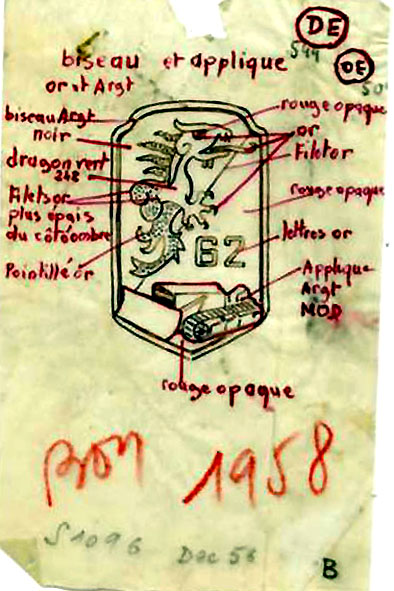 DE
DE
biseau et applique
or et Argt
599
50
biseau Argt
noir
dragon vert
248
Filets or
plus épais
du côté ombre
Pointillé or
rouge opaque
or
Filet or
rouge opaque
lettres or
Applique
Argt
MOD
62
rouge opaque
BON 1958
S1096 Dec 56
B